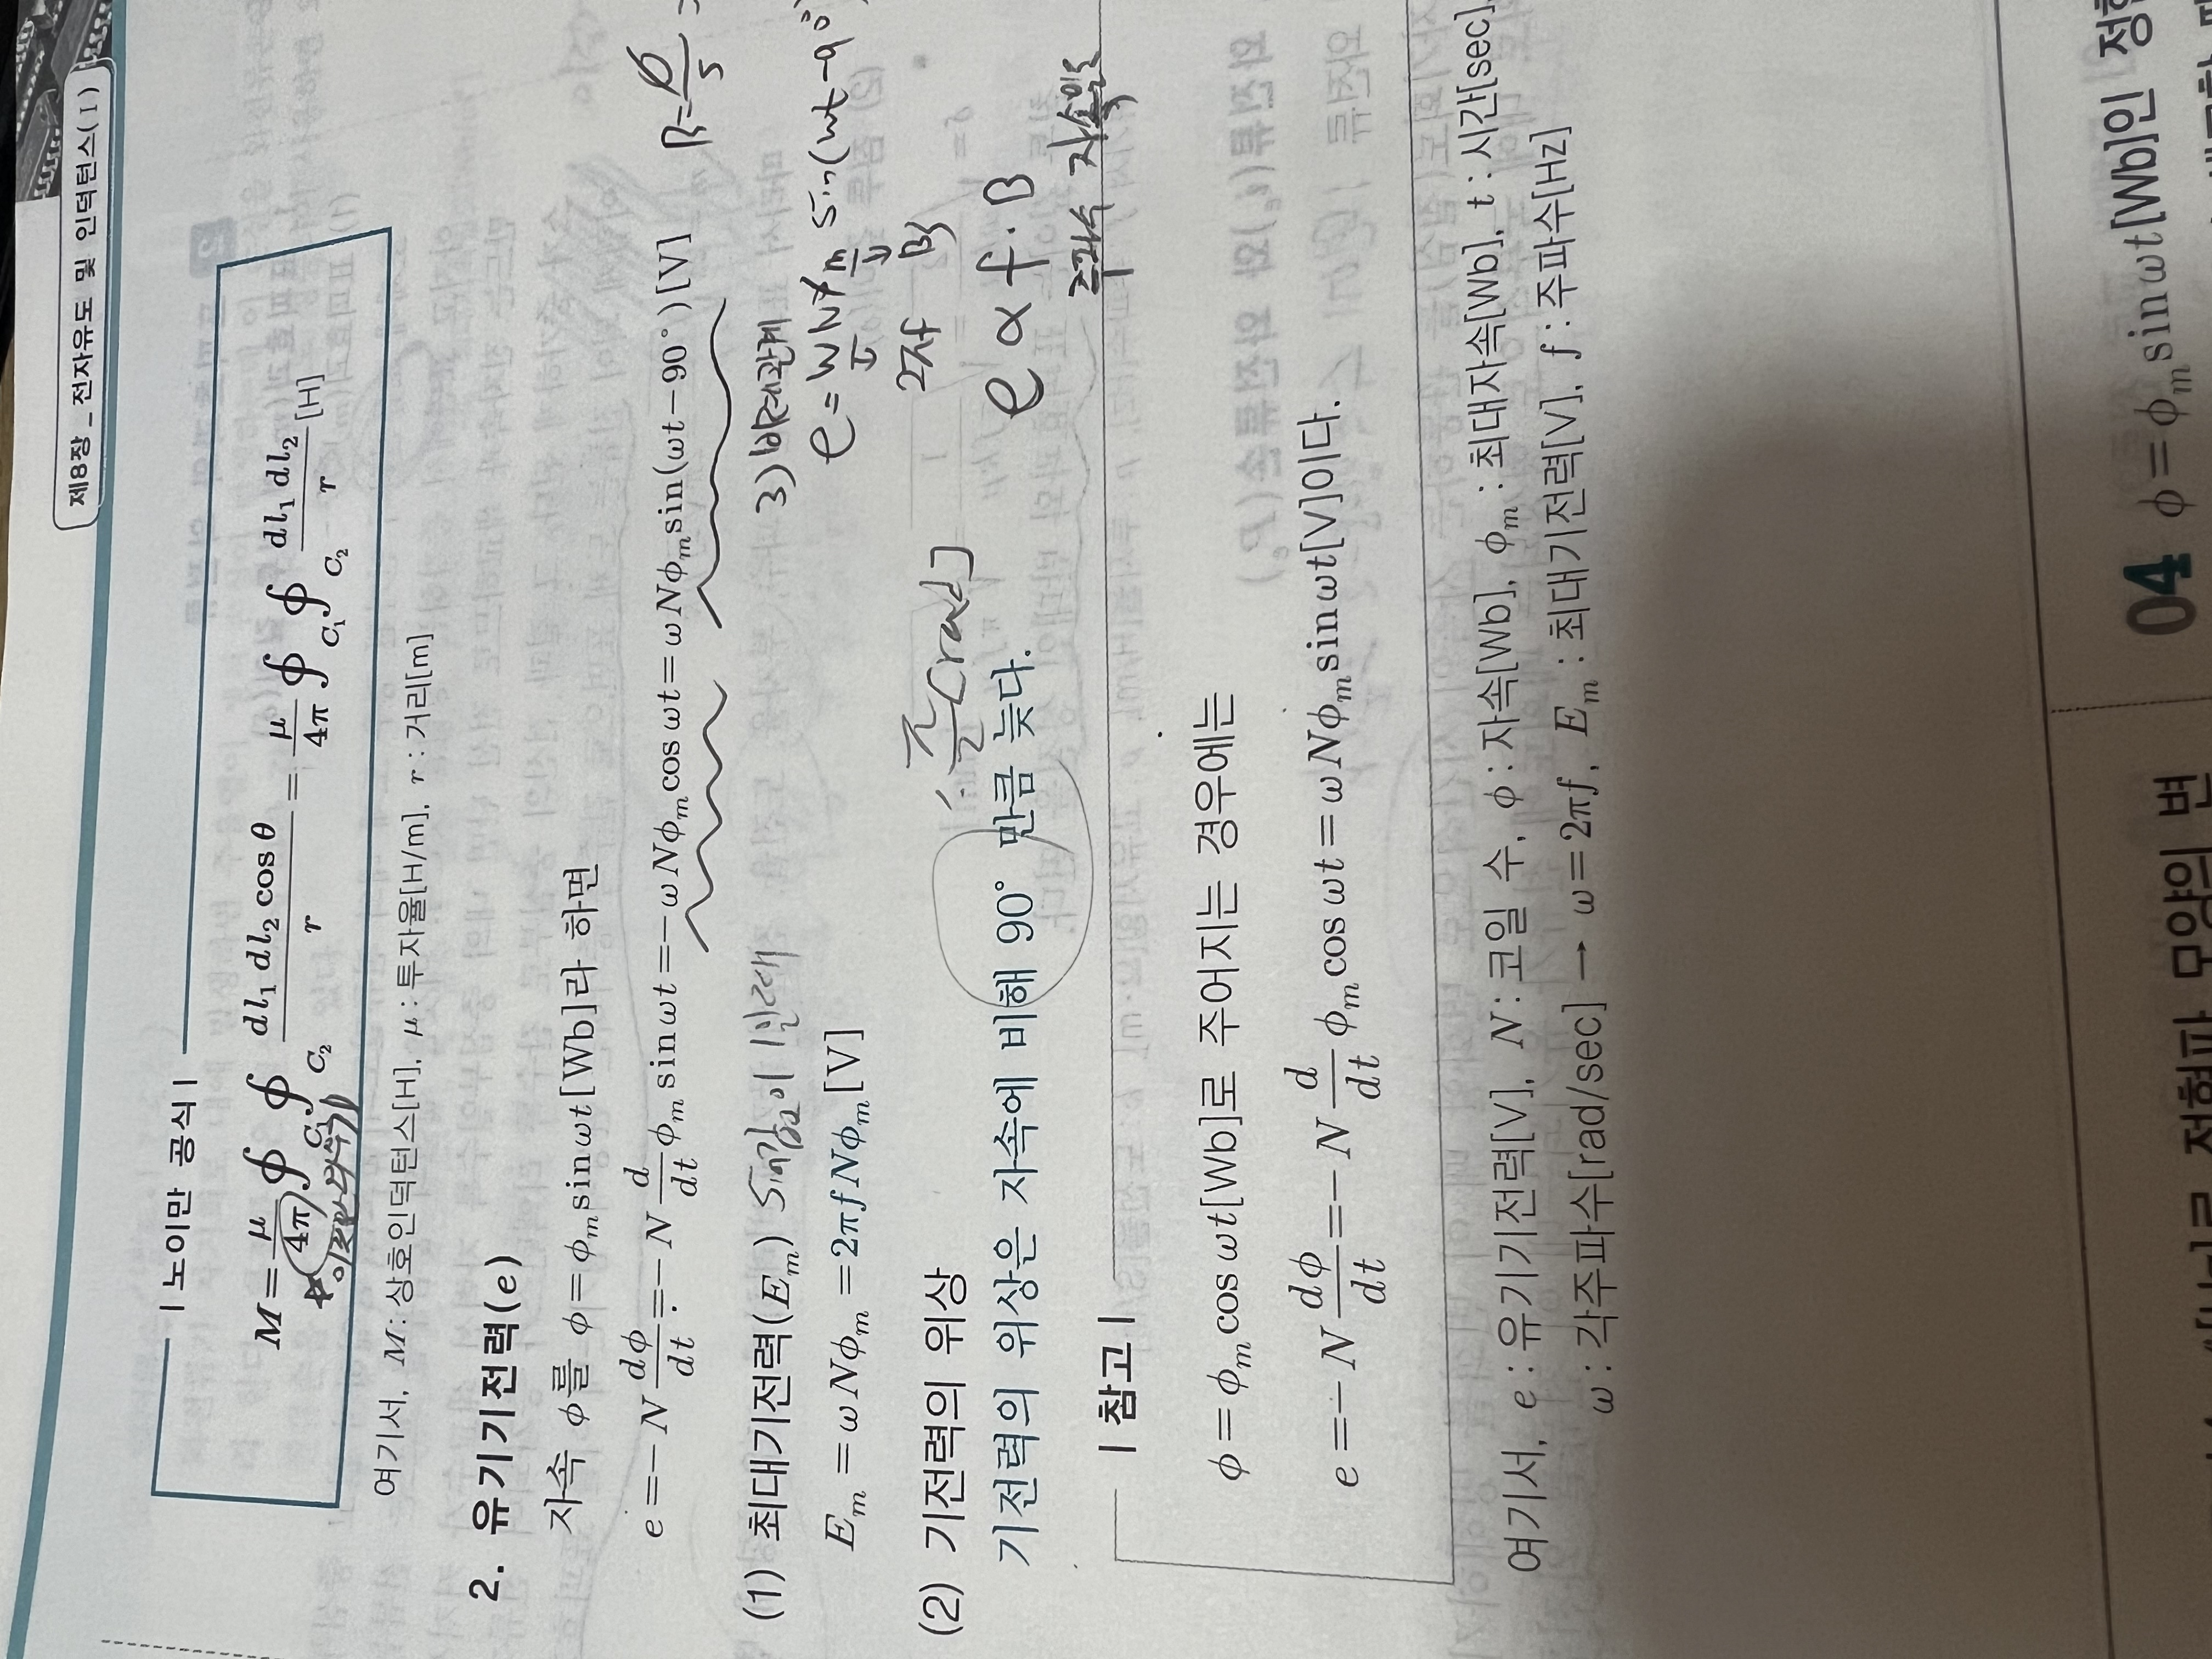 제8장 _ 전자유도 및 인덕턴스(Ⅰ)
| 노이만 공식 |
M = μ/4π ∮C₁ ∮C₂ dl₁ dl₂ cosθ / r = μ/4π ∮C₁ ∮C₂ dl₁ dl₂ / r [H]
여기서, M : 상호인덕턴스[H], μ : 투자율[H/m], r : 거리[m]
2. 유기기전력(e)
자속 φ를 φ = φₘ sinωt [Wb]라 하면
B = φ/S
e = −N dφ/dt = −N d/dt φₘ sinωt = −ωNφₘ cosωt = ωNφₘ sin(ωt−90°) [V]
(1) 최대기전력(Eₘ) sin값이 1인데
Eₘ = ωNφₘ = 2πfNφₘ [V]
3) 비례관계
e = wNφm sin(wt−90°)
2πf BS
e ∝ f · B
주파수 자속밀도
(2) 기전력의 위상
[rad]
기전력의 위상은 자속에 비해 90° 만큼 늦다.
| 참고 |
φ = φₘ cosωt [Wb]로 주어지는 경우에는
e = −N dφ/dt = −N d/dt φₘ cosωt = ωNφₘ sinωt [V]이다.
여기서, e : 유기기전력[V], N : 코일 수, φ : 자속[Wb], φₘ : 최대자속[Wb], t : 시간[sec],
ω : 각주파수[rad/sec] → ω = 2πf, Eₘ : 최대기전력[V], f : 주파수[Hz]
04 φ = φₘ sinωt [Wb]인 정현